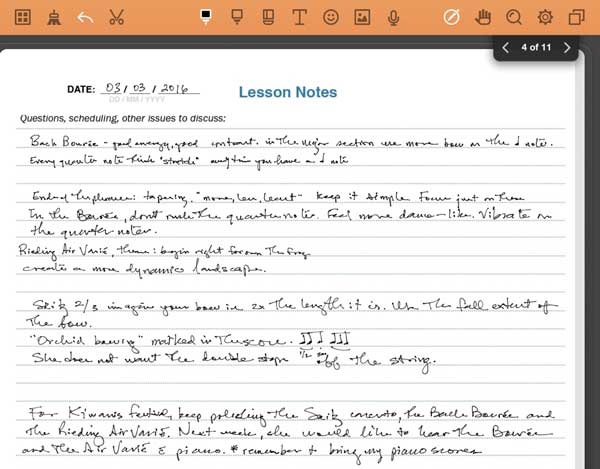 4 of 11
DATE: 03 / 03 / 2016
DD / MM / YYYY
Lesson Notes
Questions, scheduling, other issues to discuss:
Bach Bourée - good energy, good contrast. in the major section use more bow on the ♩ note.
Every quarter note think "stretch" anytime you have a ♩ note
End of the phrase: tapering. "more, less, least" keep it simple Focus just on these
In the Bourée, don't rush the quarter notes. Feel more dance-like. Vibrate on
the quarter notes.
Rieding Air Varié, theme: begin right from the frog
create a more dynamic landscape.
Seitz 2/3 imagine your bow is 2x the length it is. Use the full extent of
the bow.
"Orchid bowing" marked in the score.
She does not want the double stops off the string.
For Kiwanis festival, keep polishing the Seitz concerto, the Bach Bourée and
the Rieding Air Varié. Next week, she would like to hear the Bourée
and the Air Varié c piano. * remember to bring my piano scores